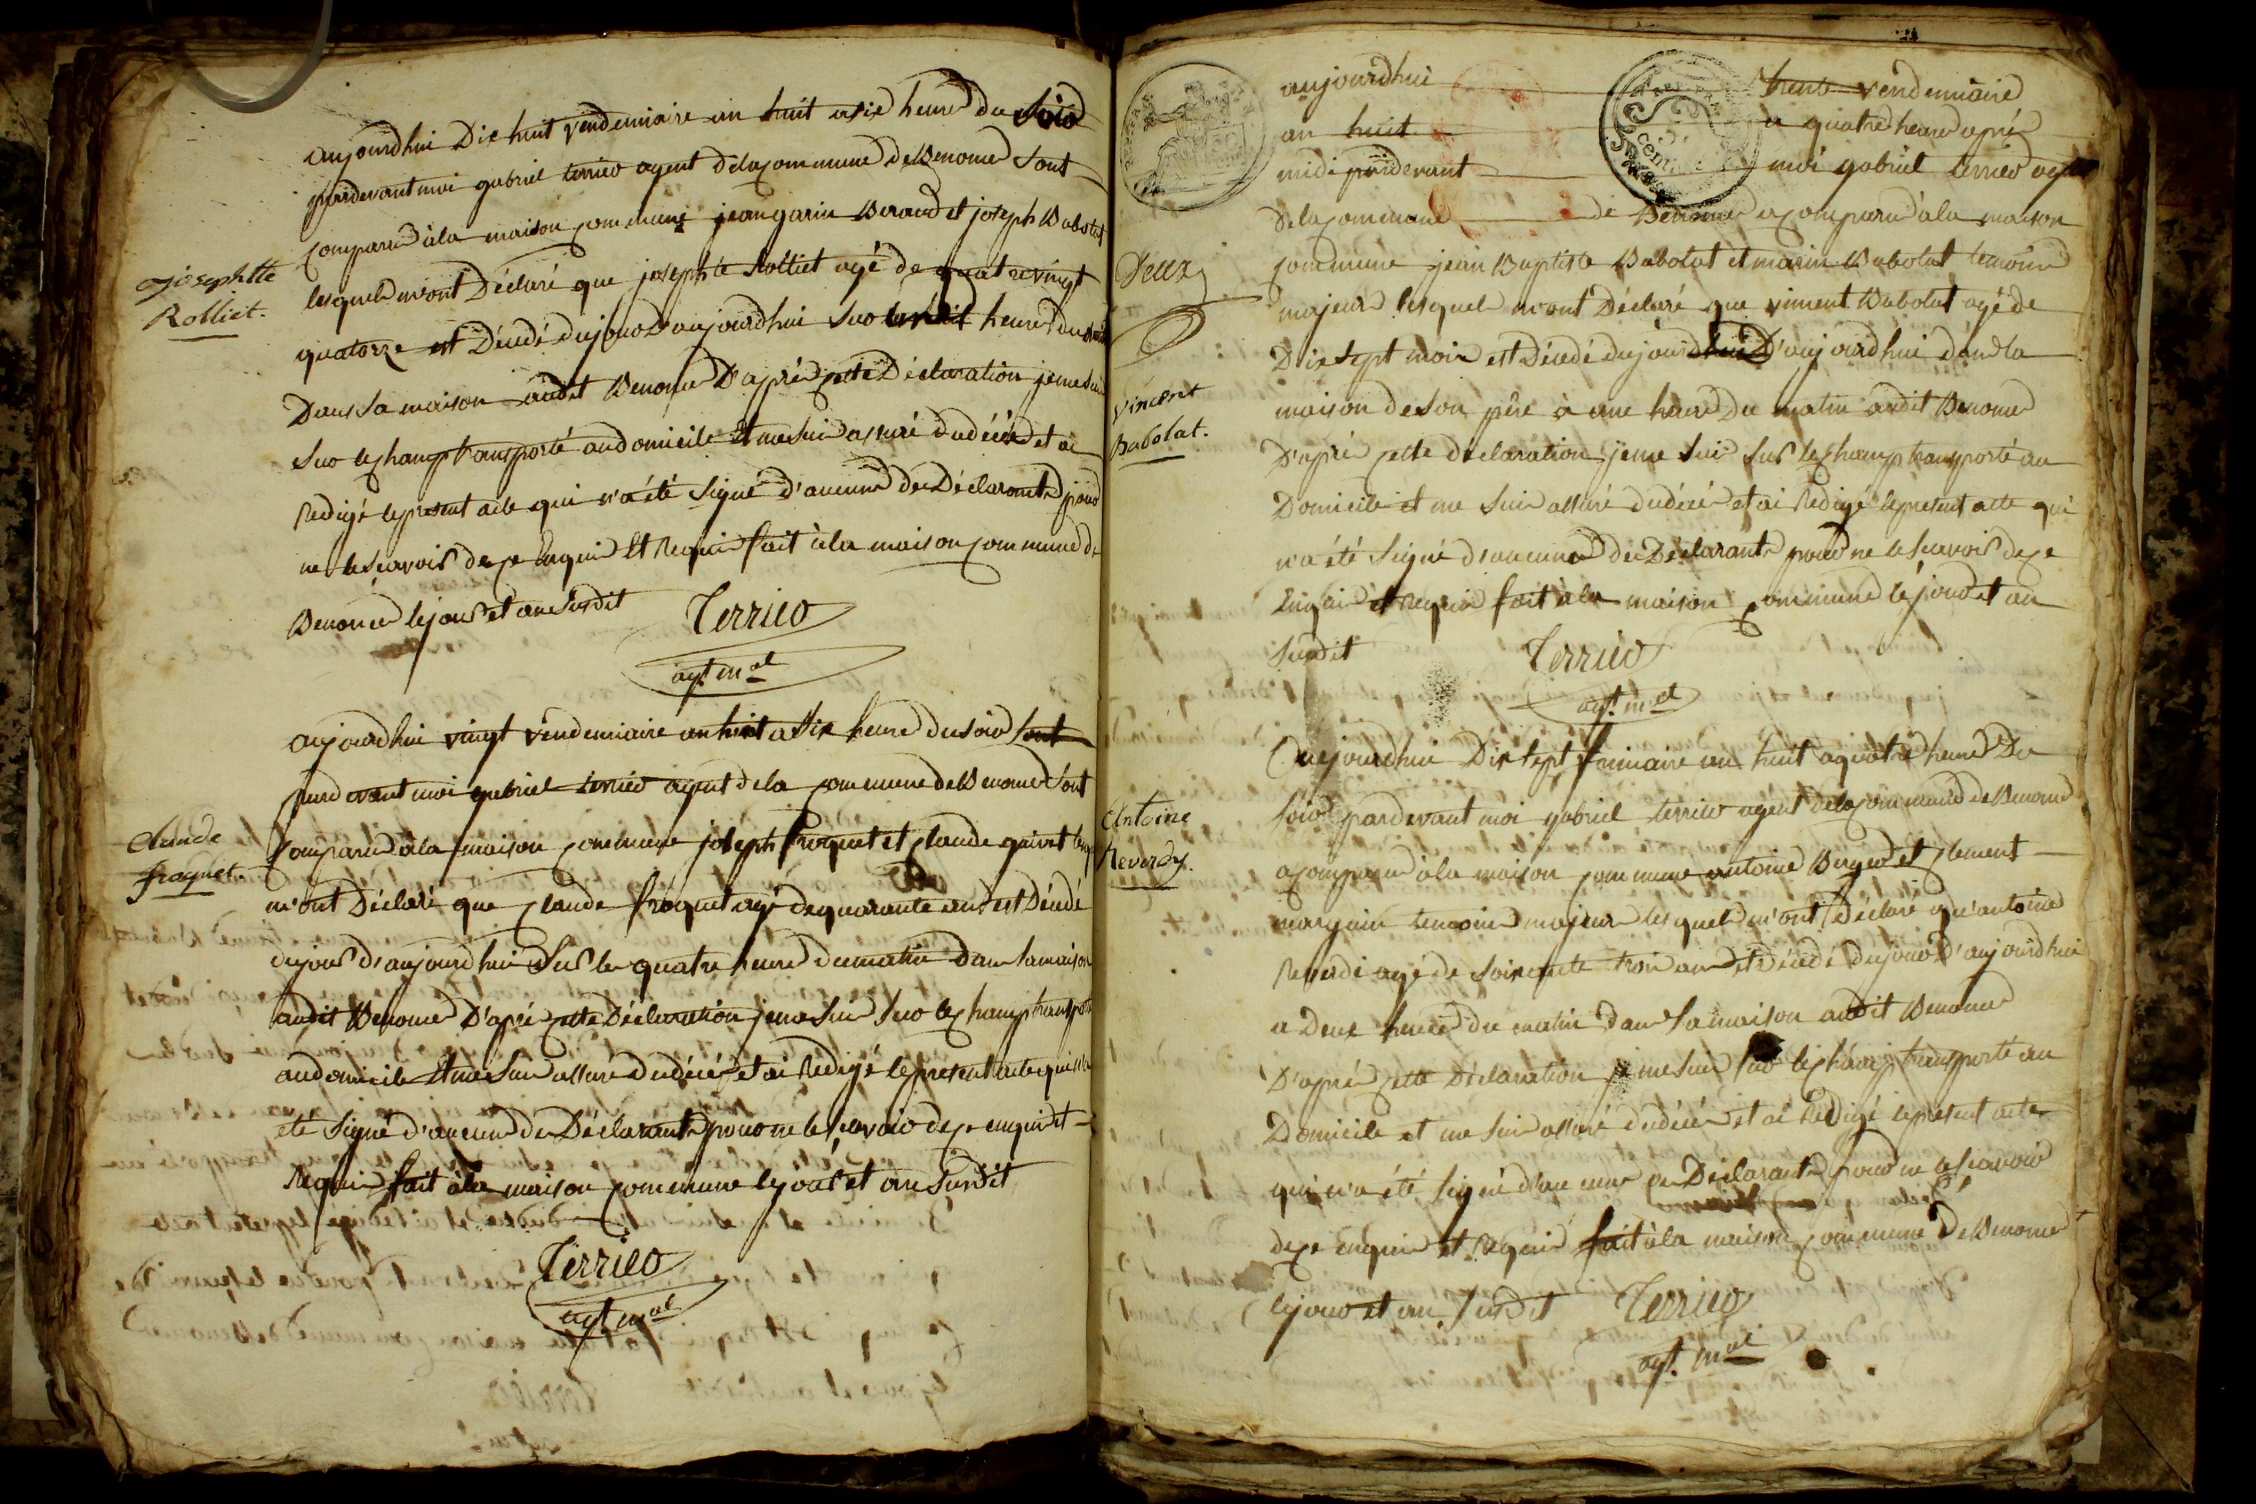 aujourdhui Dix huit vendemiaire an huit a six heure du soir
pardevant moi gabriel terrier agent de la commune de Benonce sont
comparu à la maison commune jean garin Beraud et joseph Babolat
lesquel m'ont Déclaré que josephte Rolliet agé de quatrevingt
quatorze est Décédé du jour d'aujourdhui sur les huit heure du
Dans sa maison audit Benonce D'apré cette Déclaration je me sui
sur le champ transporté au domicile et me sui assuré du décé et ai
Redigé le present acte qui n'a été signé d'aucun des Déclarants pour
ne le scavoir de ce Enquis Et Requis fait à la maison commune de
Benonce le jour et an susdit
Terrier
agt. mal
josephtte
Rolliet.
aujourdhui vingt vendemiaire an huit a six heure du soir sont
pardevant moi gabriel terrier agent de la commune de Benonce sont
comparu à la maison commune joseph froquet et claude
m'ont Déclaré que claude froquet agé de quarante ans est Décédé
du jour d'aujourdhui sur les quatre heure du matin Dans sa maison
audit Benonce D'apré cette Déclaration je me sui sur le champ transporté
au domicile Et me sui assuré du décé et ai Redigé le present acte qui n'a
eté signé d'aucun des Déclarants pour ne le scavoir de ce enquis et
Requis fait à la maison commune le jour et an susdit
Terrier
agt. mal
claude
froquet.
aujourdhui trente vendemiaire
an huit a quatre heure apré
midi pardevant moi gabriel terrier agent
de la commune de Benonce a comparu à la maison
commune jean Baptiste Babolat et marin Babolat temoins
majeur lesquel m'ont Déclaré que vincent Babolat agé de
Dix sept mois est Décédé du jour d'aujourdhui dans la
maison de son père à une heure du matin audit Benonce
D'apré cette déclaration je me sui sur le champ transporté au
Domicile et me sui assuré du décé et ai Redigé le present acte qui
n'a été signé d'aucun des Déclarants pour ne le scavoir de ce
Enquis et Requis fait à la maison commune le jour et an
susdit
Terrier
agt. mal
Deux
vincent
Babolat.
Aujourdhui Dix sept frimaire an huit a quatre heure Du
soir pardevant moi gabriel terrier agent de la commune de Benonce
a comparu à la maison commune antoine Berger et clement
marguin temoins majeur lesquel m'ont Déclaré qu'antoine
Reverdi agé de soixante trois ans et décédé du jour d'aujourdhui
a Deux heure du matin dans sa maison audit Benonce
D'apré cette Déclaration je me sui sur le champ transporté au
Domicile et me sui assuré du décé et ai Redigé le present acte
qui n'a été signé d'aucun des Déclarants pour ne le scavoir
de ce enquis et Requis fait à la maison commune de Benonce
le jour et an susdit Terrier
agt. mal
Antoine
Reverdy.